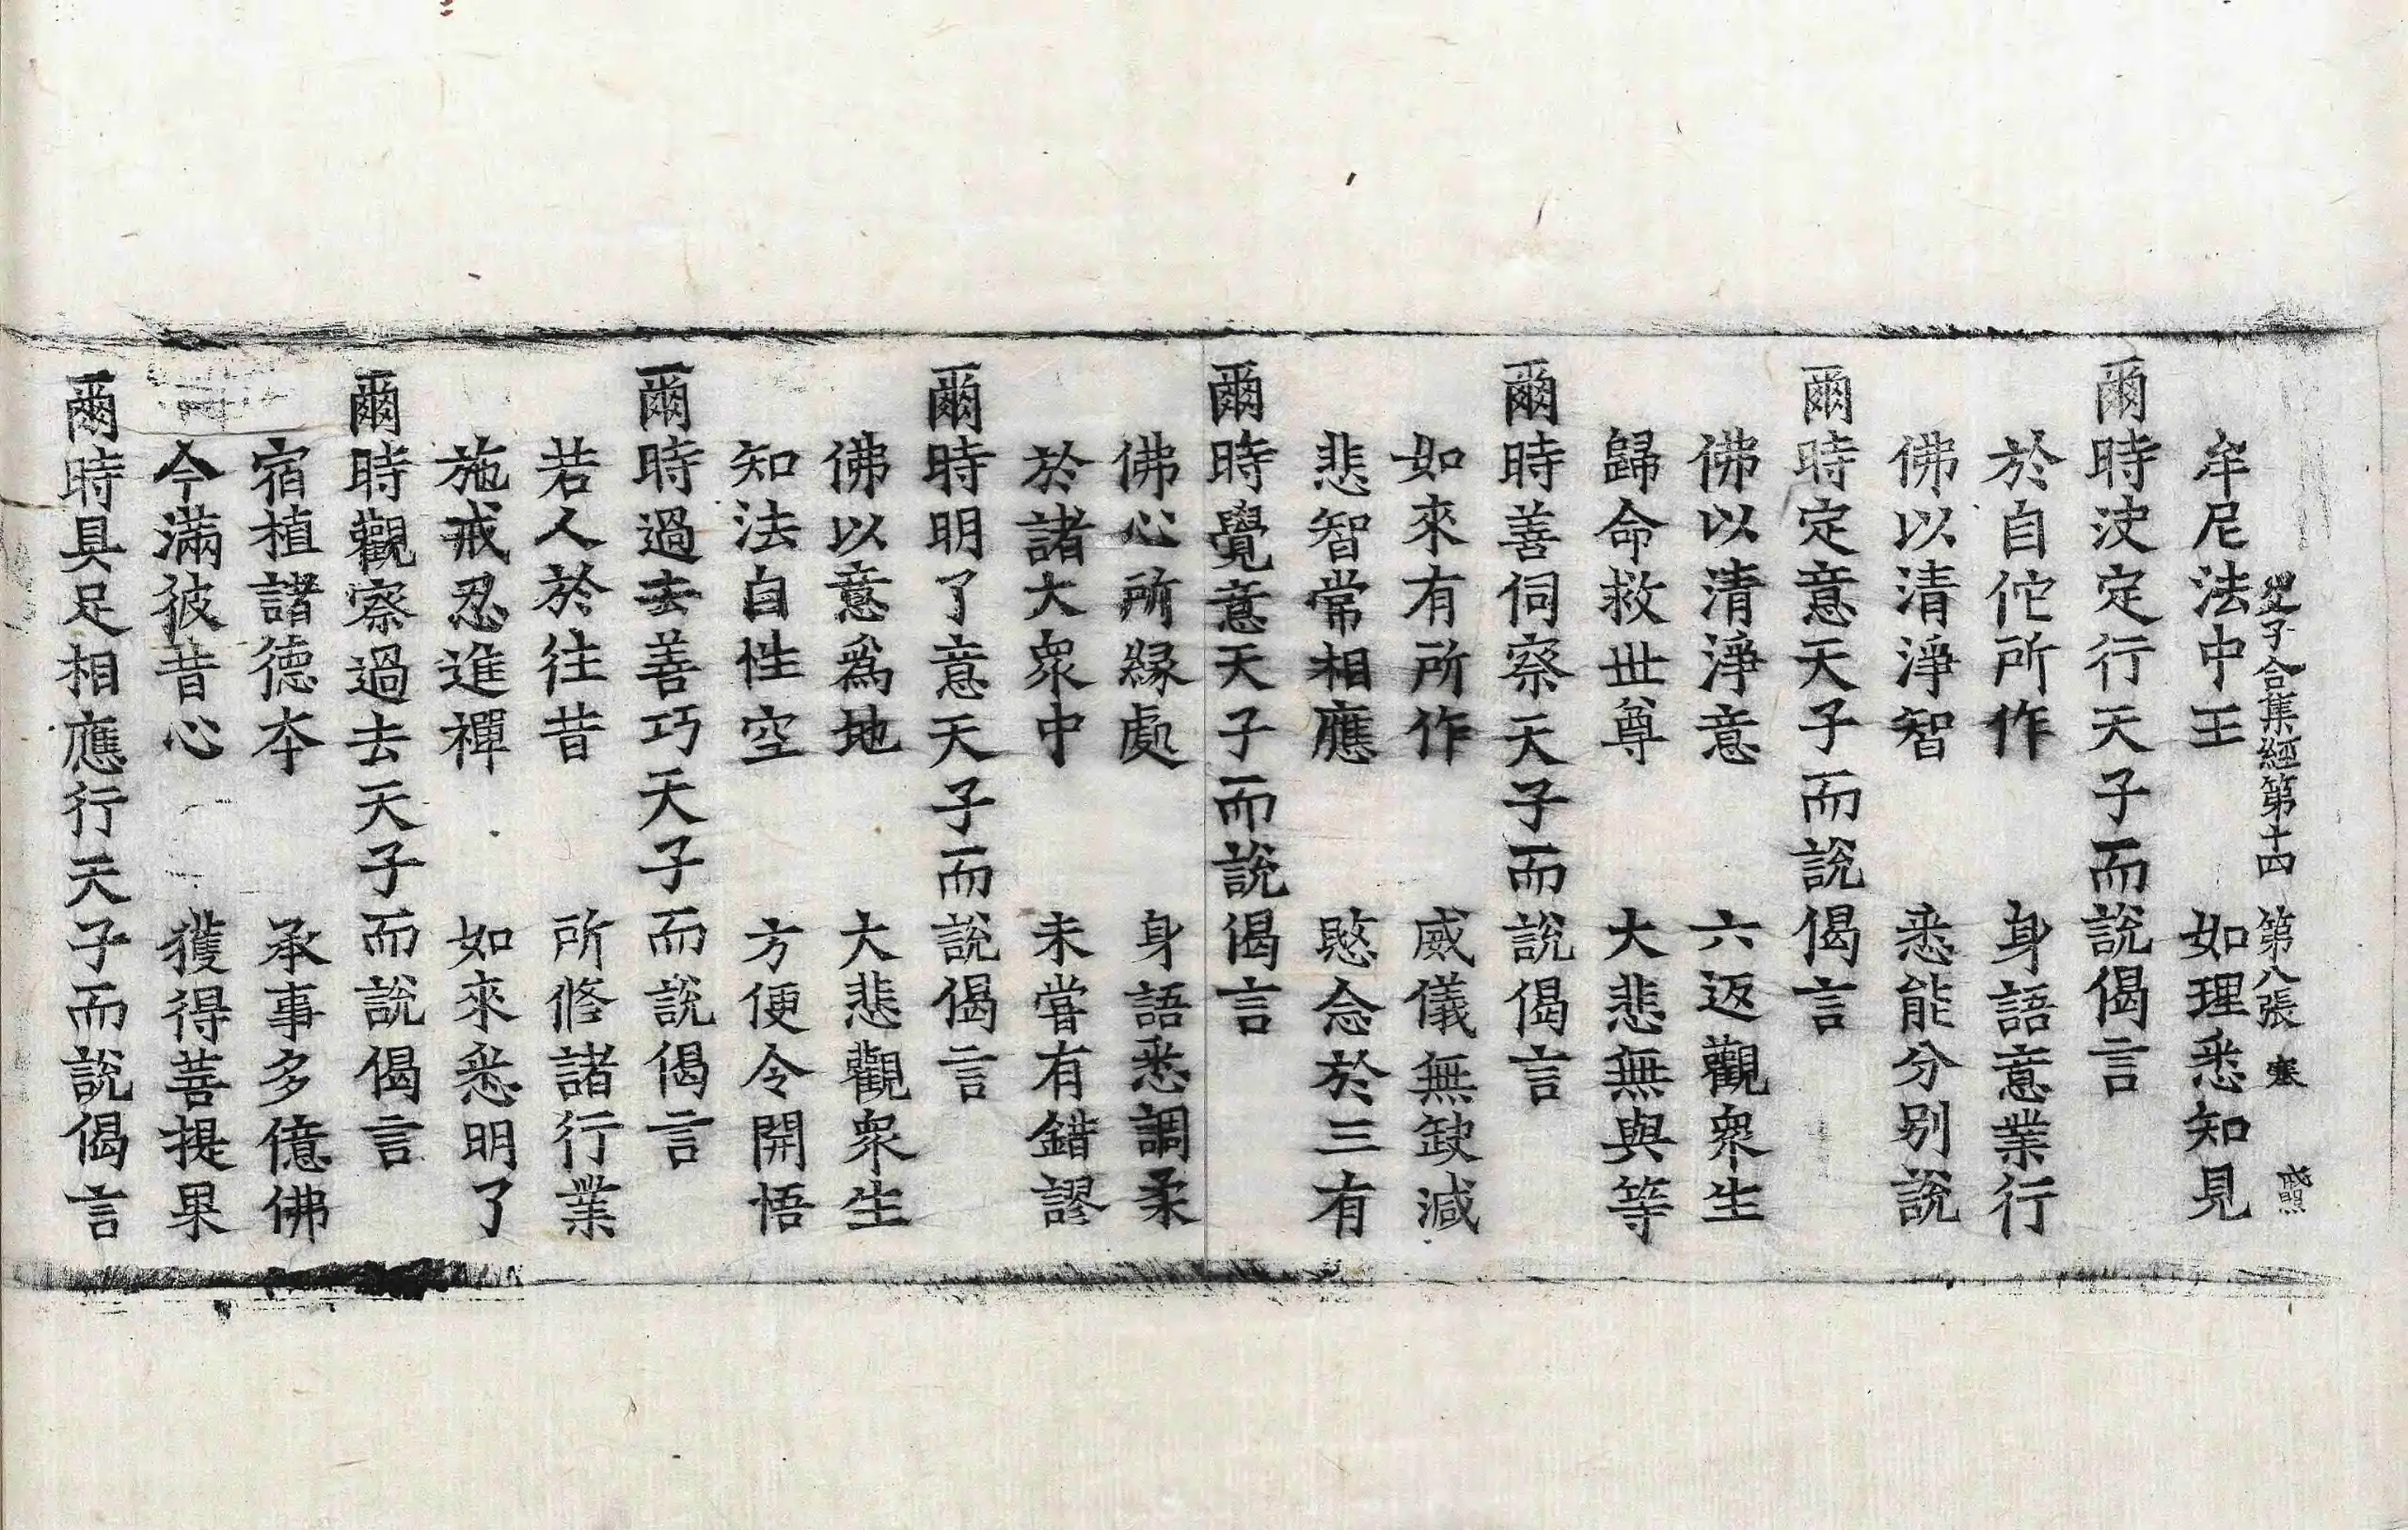 父子合集經第十四 第八張 寒 戒照
牟尼法中王 如理悉知見
爾時決定行天子而說偈言
於自佗所作 身語意業行
佛以清淨智 悉能分別說
爾時定意天子而說偈言
佛以清淨意 六返觀衆生
歸命救世尊 大悲無與等
爾時善伺察天子而說偈言
如來有所作 威儀無缺減
悲智常相應 愍念於三有
爾時覺意天子而說偈言
佛心所緣處 身語悉調柔
於諸大衆中 未嘗有錯謬
爾時明了意天子而說偈言
佛以意爲地 大悲觀衆生
知法自性空 方便令開悟
爾時過去善巧天子而說偈言
若人於往昔 所修諸行業
施戒忍進禪 如來悉明了
爾時觀察過去天子而說偈言
宿植諸德本 承事多億佛
今滿彼昔心 獲得菩提果
爾時具足相應行天子而說偈言